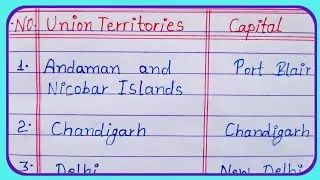 NO. Union Territories Capital
1. Andaman and Port Blair
Nicobar Islands
2. Chandigarh Chandigarh
3. Delhi New Delhi